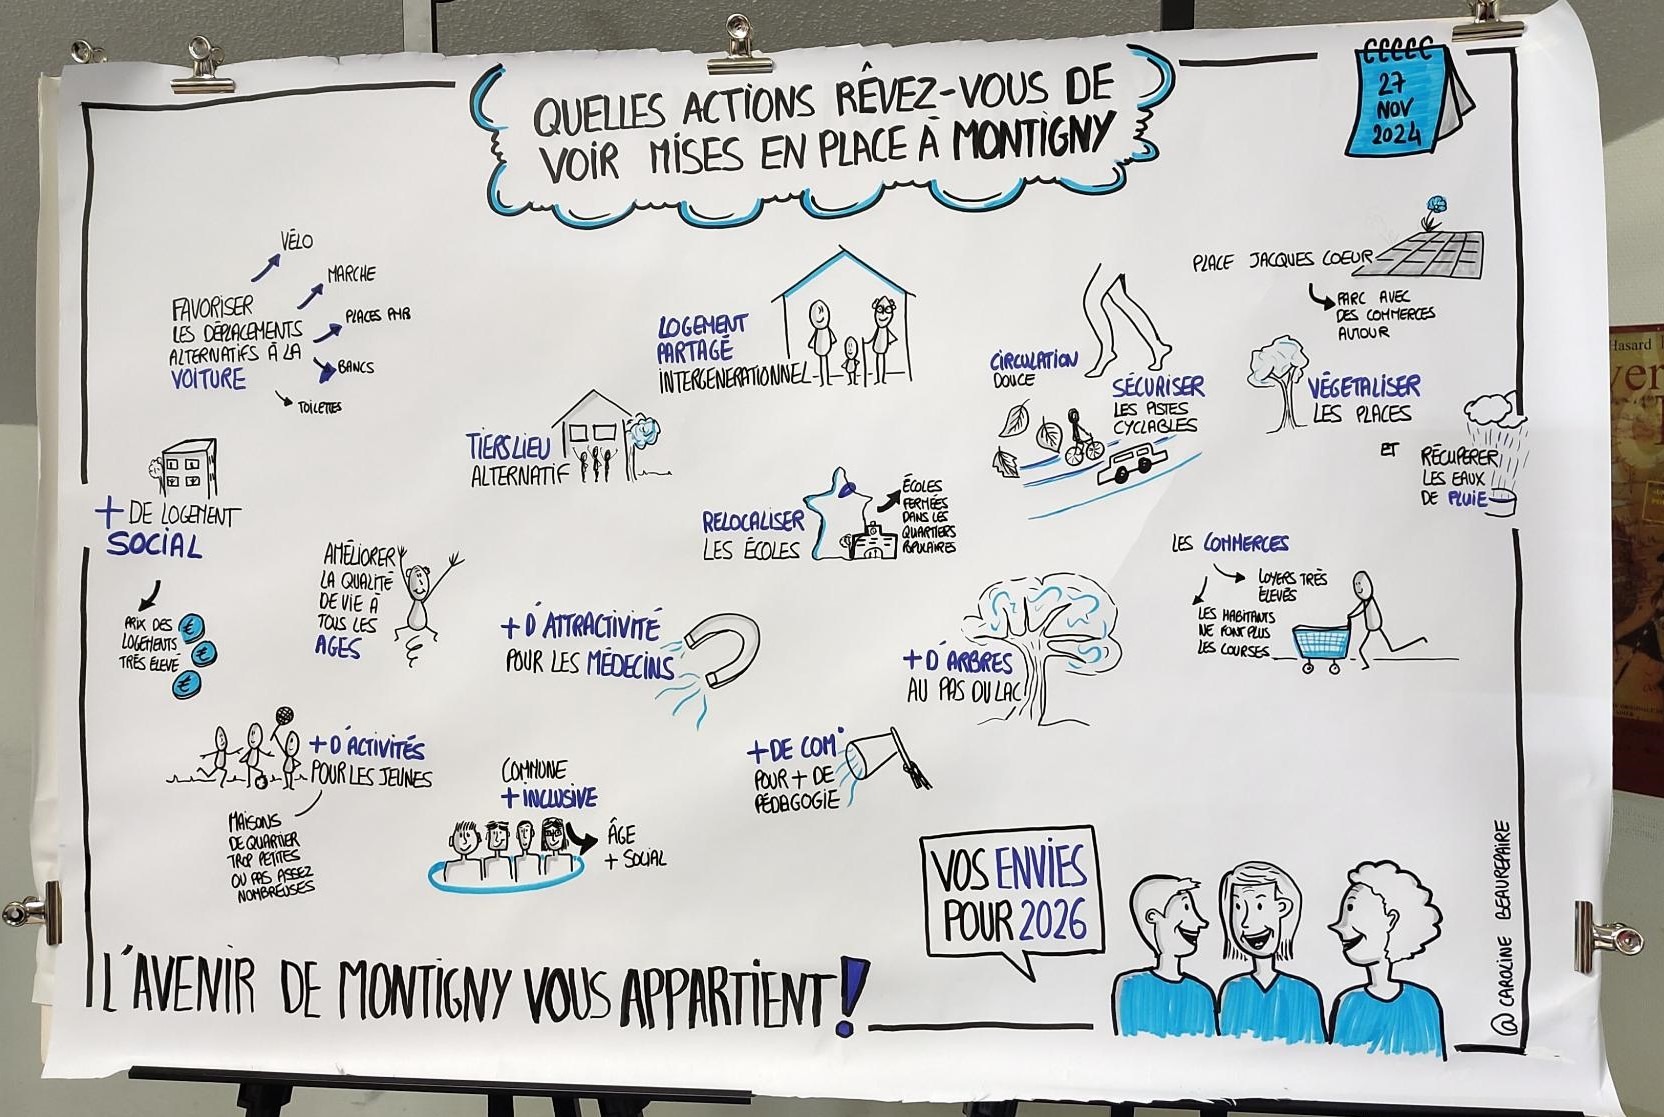 QUELLES ACTIONS RÊVEZ-VOUS DE
VOIR MISES EN PLACE À MONTIGNY
27
NOV
2024
VÉLO
MARCHE
PLACES PMR
BANCS
TOILETTES
FAVORISER
LES DÉPLACEMENTS
ALTERNATIFS À LA
VOITURE
LOGEMENT
PARTAGÉ
INTERGENERATIONNEL
CIRCULATION
DOUCE
SÉCURISER
LES PISTES
CYCLABLES
PLACE JACQUES COEUR
PARC AVEC
DES COMMERCES
AUTOUR
VÉGETALISER
LES PLACES
ET
RÉCUPÉRER
LES EAUX
DE PLUIE
TIERS LIEU
ALTERNATIF
+ DE LOGEMENT
SOCIAL
PRIX DES
LOGEMENTS
TRÈS ÉLEVÉ
€
€
€
RELOCALISER
LES ÉCOLES
ÉCOLES
FERMÉES
DANS LES
QUARTIERS
POPULAIRES
AMÉLIORER
LA QUALITÉ
DE VIE À
TOUS LES
AGES
+ D'ATTRACTIVITÉ
POUR LES MÉDECINS
+ D'ARBRES
AU PAS DU LAC
LES COMMERCES
LOYERS TRÈS
ÉLEVÉS
LES HABITANTS
NE FONT PLUS
LES COURSES
+ D'ACTIVITÉS
POUR LES JEUNES
MAISONS
DE QUARTIER
TROP PETITES
OU PAS ASSEZ
NOMBREUSES
COMMUNE
+ INCLUSIVE
ÂGE
+ SOCIAL
+ DE COM°
POUR + DE
PÉDAGOGIE
VOS ENVIES
POUR 2026
L'AVENIR DE MONTIGNY VOUS APPARTIENT !
@ CAROLINE BEAUREPAIRE
Hasard